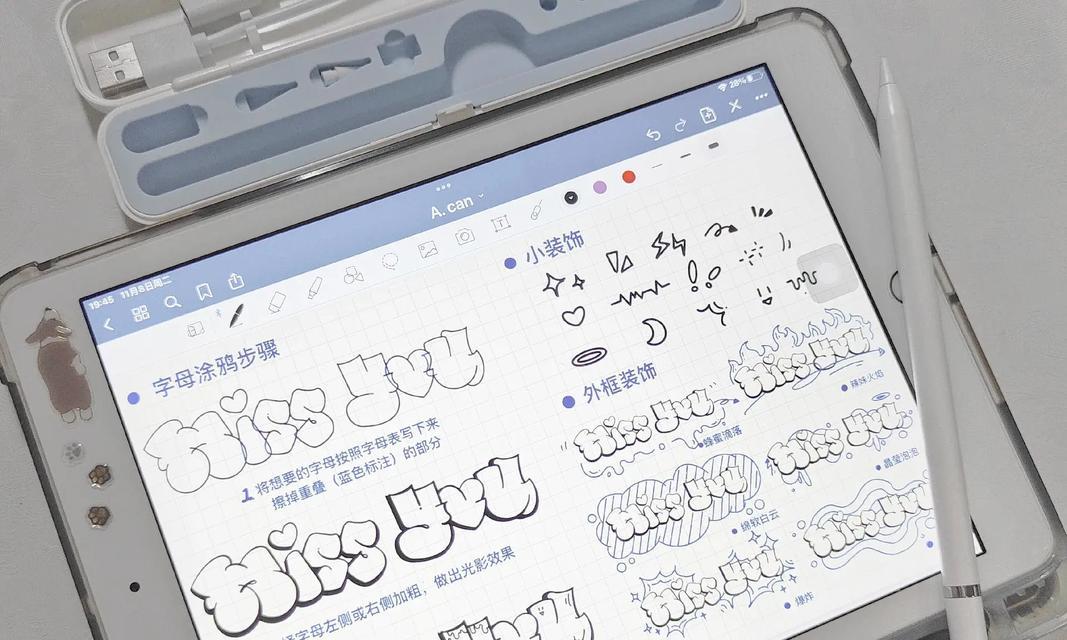 19:45 11月8日周二
28%
A. can
字母涂鸦步骤
miss you
1 将想要的字母按照字母表写下来
擦掉重叠（蓝色标注）的部分
miss you
字母左侧或右侧加粗，做出光影效果
小装饰
外框装饰
miss you
蜂蜜滴落
miss you
辣妹火焰
miss you
绵软白云
miss you
晶莹泡泡
miss you
爆炸
miss you